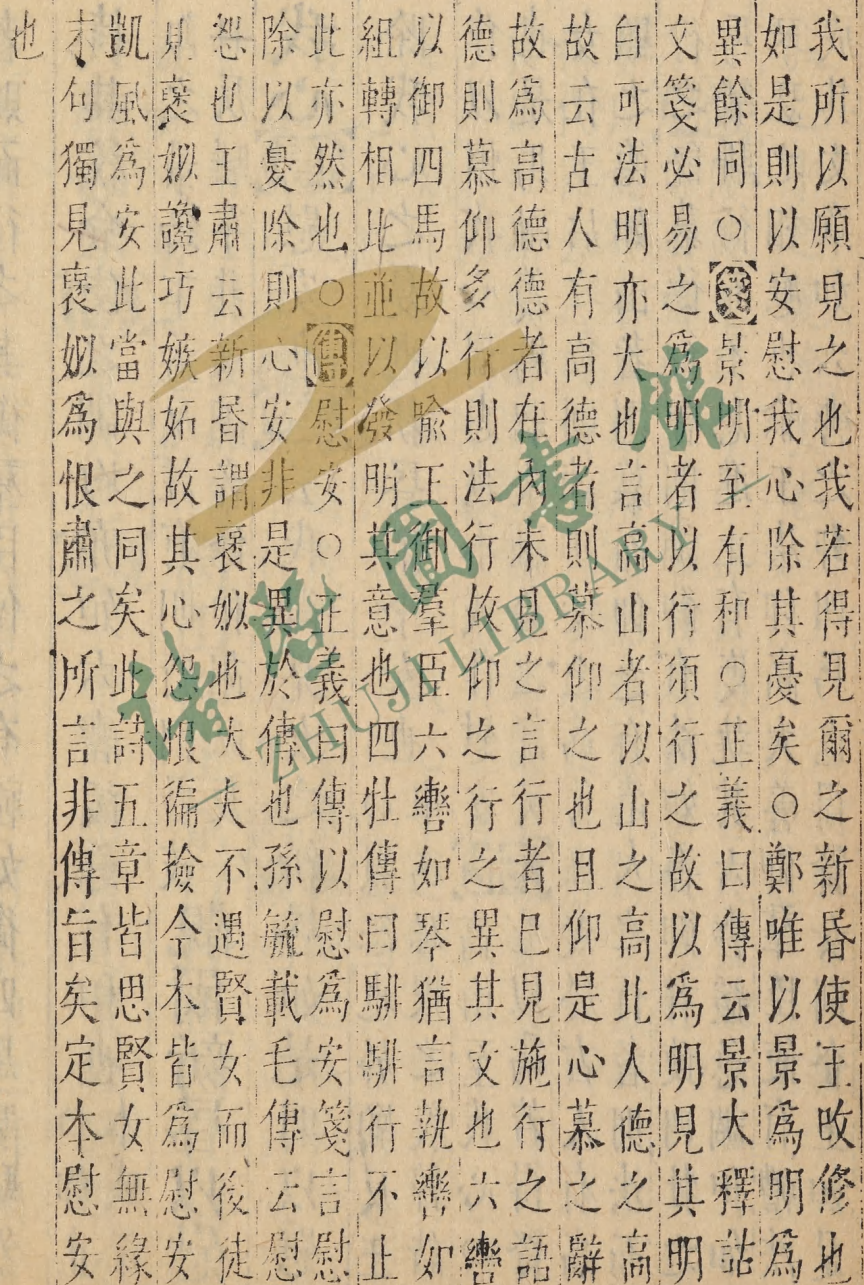 我所以願見之也我若得見爾之新昬使王改修也
如是則以安慰我心除其憂矣○鄭唯以景爲明爲
異餘同○箋景明至有和○正義曰傳云景大釋詁
文箋必易之爲明者以行須行之故以爲明見其明
白可法明亦大也言高山者以山之高比人德之高
故云古人有高德者則慕仰之也且仰是心慕之辭
故爲高德德者在內未見之言行者已見施行之語
德則慕仰多行則法行故仰之行之異其文也六轡
以御四馬故以喩王御羣臣六轡如琴猶言執轡如
組轉相比並以發明其意也四牡傳曰騑騑行不止
此亦然也○傳慰安○正義曰傳以慰爲安箋言慰
除以憂除則心安非是異於傳也孫毓載毛傳云慰
怨也王肅云新昬謂襃姒也大夫不遇賢女而後徒
見襃姒讒巧嫉妬故其心怨恨徧撿今本皆爲慰安
凱風爲安此當與之同矣此詩五章皆思賢女無緣
末句獨見襃姒爲恨肅之所言非傳旨矣定本慰安
也
諸暨圖書館
ZHUJI LIBRARY